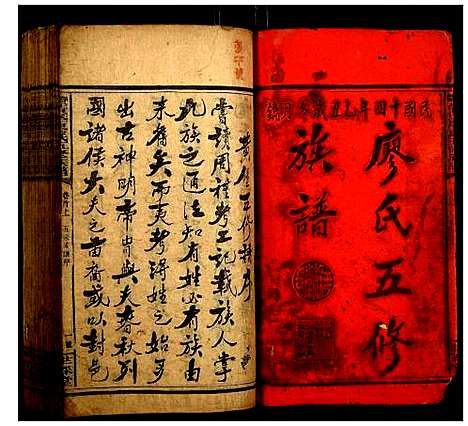 民國十四年乙丑歲冬月鐫
廖氏五修
族譜
五修族譜序
嘗讀周禮考工記載族人掌
此族之通注知有姓必有族由
來舊矣而夷考得姓之始多
出古神明帝胄與夫春秋列
國諸侯大夫之苗裔或以封邑
卷首上